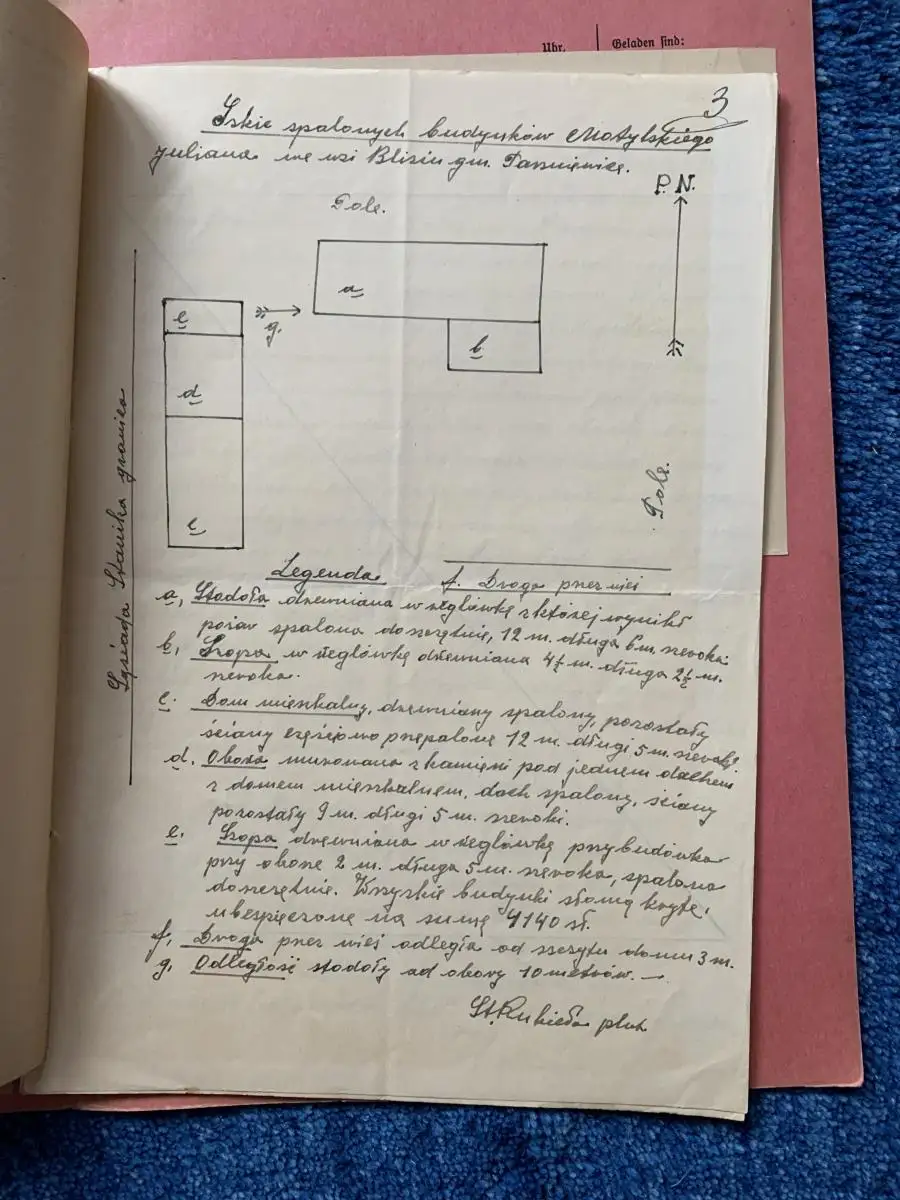 Uhr. Geladen sind:
3
Szkic spalonych budynków Motylskiego
Juliana we wsi Blizin gm.
P.N.
Pole.
a
e
g.
b
d
c
Pole.
Sąsiada Stanika granica
Legenda
f. Droga przez wieś
a, Stodoła drewniana w węgłówkę z której wynikł
pożar spalona doszczętnie, 12 m. długa 6 m. szeroka.
b, Szopa w węgłówkę drewniana 4½ m. długa 2½ m.
szeroka.
c. Dom mieszkalny, drewniany spalony, pozostały
ściany częściowo przepalone 12 m. długi 5 m. szeroki
d. Obora murowana z kamieni pod jednem dachem
z domem mieszkalnem, dach spalony, ściany
pozostały 9 m. długi 5 m. szeroki.
e. Szopa drewniana w węgłówkę przybudówka
przy oborze 2 m. długa 5 m. szeroka, spalona
doszczętnie. Wszyskie budynki słomą kryte,
ubezpieczone na sumę 4140 zł.
f, Droga przez wieś odległa od szczytu domu 3 m.
g, Odległość stodoły od obory 10 metrów. —
St. Kubieła plut